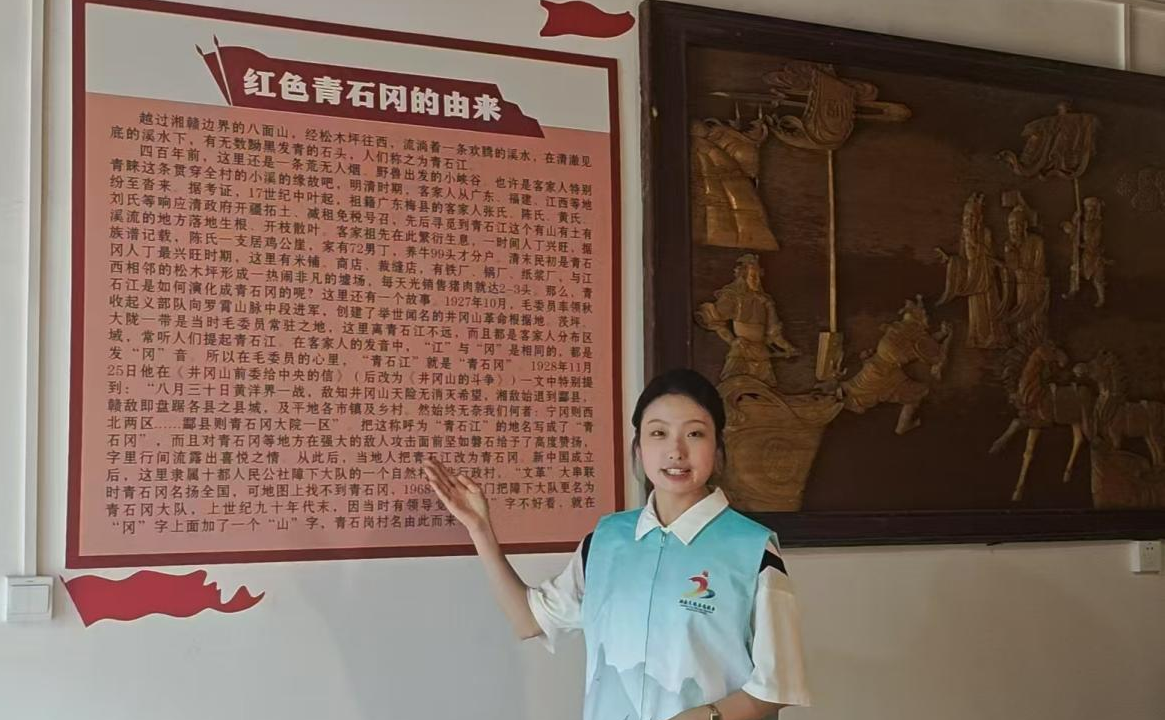 红色青石冈的由来
越过湘赣边界的八面山，经松木坪往西，流淌着一条欢腾的溪水，在清澈见
底的溪水下，有无数黝黑发青的石头，人们称之为青石江。
四百年前，这里还是一条荒无人烟、野兽出发的小峡谷。也许是客家人特别
青睐这条贯穿全村的小溪的缘故吧，明清时期，客家人从广东、福建、江西等地
纷至沓来。据考证，17世纪中叶起，祖籍广东梅县的客家人张氏、陈氏、黄氏、
刘氏等响应清政府开疆拓土、减租免税号召，先后寻觅到青石江这个有山有土有
溪流的地方落地生根、开枝散叶。客家祖先在此繁衍生息，一时间人丁兴旺，据
族谱记载，陈氏一支居鸡公崖，家有72男丁，养牛99头才分户。清末民初是青石
冈人丁最兴旺时期，这里有米铺、商店、裁缝店，有铁厂、锅厂、纸浆厂，与江
西相邻的松木坪形成一热闹非凡的墟场，每天光销售猪肉就达2-3头。那么，青
石江是如何演化成青石冈的呢？这里还有一个故事。1927年10月，毛委员率领秋
收起义部队向罗霄山脉中段进军，创建了举世闻名的井冈山革命根据地。茨坪、
大陇一带是当时毛委员常驻之地，这里离青石江不远，而且都是客家人分布区
域，常听人们提起青石江。在客家人的发音中，“江”与“冈”是相同的，都是
发“冈”音。所以在毛委员的心里，“青石江”就是“青石冈”。1928年11月
25日他在《井冈山前委给中央的信》（后改为《井冈山的斗争》）一文中特别提
到：“八月三十日黄洋界一战，敌知井冈山天险无消灭希望，湘敌始退到酃县，
赣敌即盘踞各县之县城，及平地各市镇及乡村。然始终无奈我们何者：宁冈则西
北两区……酃县则青石冈大院一区”。把这称呼为“青石江”的地名写成了“青
石冈”，而且对青石冈等地方在强大的敌人攻击面前坚如磐石给予了高度赞扬，
字里行间流露出喜悦之情。从此后，当地人把青石江改为青石冈。新中国成立
后，这里隶属十都人民公社障下大队的一个自然村 行政村。“文革”大串联
时青石冈名扬全国，可地图上找不到青石冈，1968 门把障下大队更名为
青石冈大队，上世纪九十年代末，因当时有领导 字不好看，就在
“冈”字上面加了一个“山”字，青石岗村名由此而来